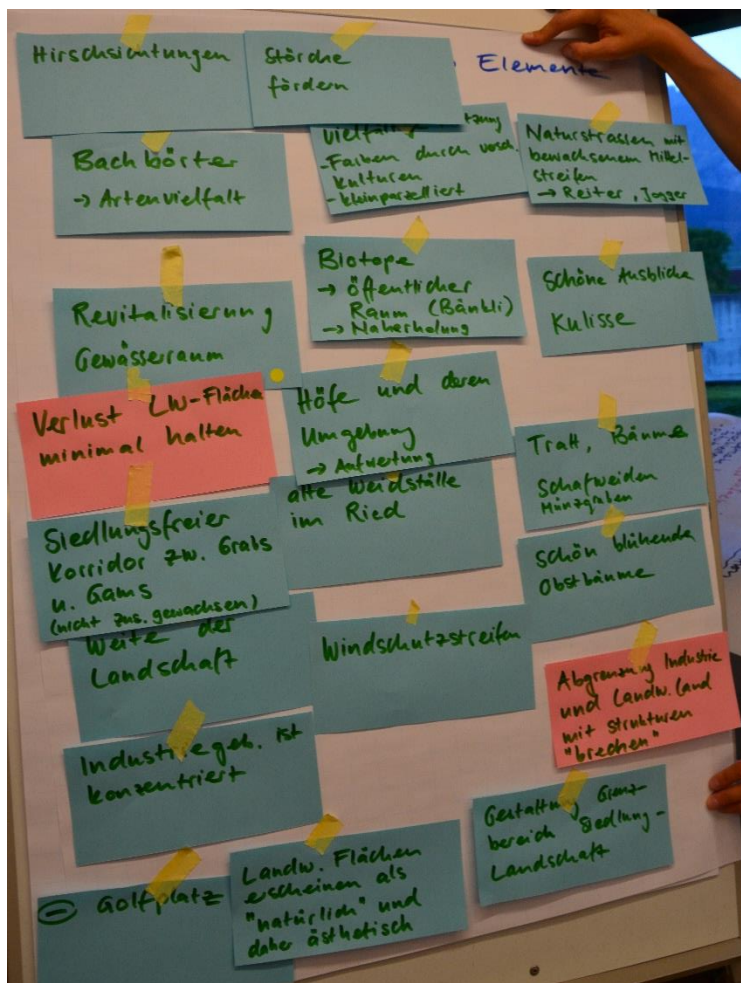 Elemente
Hirschsichtungen
Störche
fördern
Bachbörter
→ Artenvielfalt
- Farben durch versch.
Kulturen
- kleinparzelliert
Naturstrassen mit
bewachsenem Mittel-
streifen
→ Reiter, Jogger
Revitalisierung
Gewässerraum
Biotope
→ öffentlicher
Raum (Bänkli)
→ Naherholung
Schöne Ausblicke
Kulisse
Verlust LW-Fläche
minimal halten
Höfe und deren
Umgebung
→ Aufwertung
Tratt, Bäume
Schafweiden
Münzgraben
alte Weidställe
im Ried
Siedlungsfreier
Korridor zw. Grabs
u. Gams
(nicht zus. gewachsen)
schön blühende
Obstbäume
Weite der
Landschaft
Windschutzstreifen
Abgrenzung Industrie
und Landw. Land
mit Strukturen
"brechen"
Industriegeb. ist
konzentriert
Gestaltung Grenz-
bereich Siedlung -
Landschaft
Golfplatz
Landw. Flächen
erscheinen als
"natürlich" und
daher ästhetisch